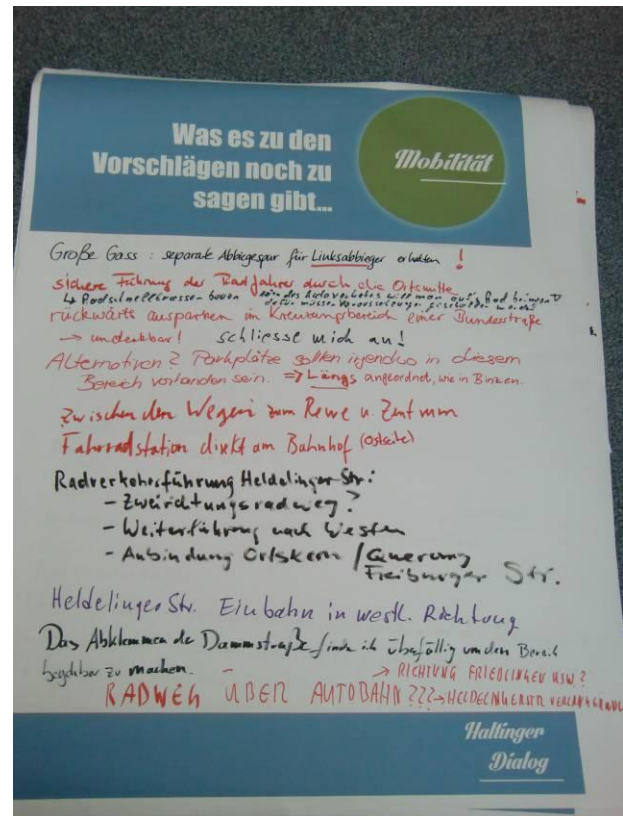 Was es zu den
Vorschlägen noch zu
sagen gibt...
Mobilität
Große Gass : separate Abbiegespur für Linksabbieger erhalten !
sichere Führung der Radfahrer durch die Ortsmitte
↳ Radschnelltrassen bauen des Autoverkehrs will man aufs Rad bringen
dafür müssen Voraussetzungen geschaffen werden
rückwärts ausparken im Kreuzungsbereich einer Bundesstraße
→ undenkbar! schliesse mich an!
Alternativen? Parkplätze sollten irgendwo in diesem
Bereich vorhanden sein. ⇒ Längs angeordnet, wie in Binzen.
Zwischen den Wegen zum Rewe u. Zentrum
Fahrradstation direkt am Bahnhof (Ostseite)
Radverkehrsführung Heldelinger Str:
- Zweirichtungsradweg?
- Weiterführung nach Westen
- Anbindung Ortskern / Querung
Freiburger Str.
Heldelinger Str. Einbahn in westl. Richtung
Das Abklemmen der Dammstraße finde ich überfällig um den Bereich
begehbar zu machen.
→ RICHTUNG FRIEDLINGEN USW?
RADWEG ÜBER AUTOBAHN ??? → HELDELINGERSTR
Haltinger
Dialog